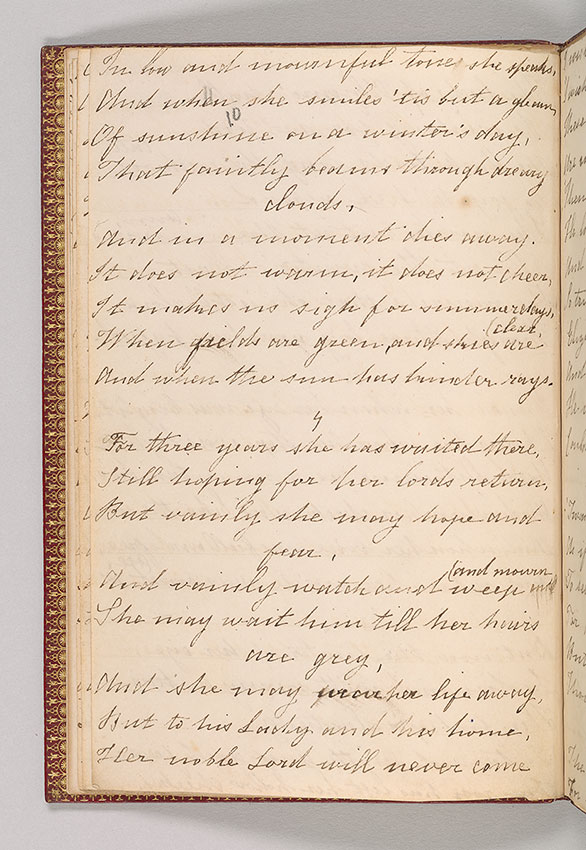 In low and mournful tone she speaks,
And when she smiles 'tis but a gleam
10
Of sunshine on a winter's day,
That faintly beams through dreary
clouds,
And in a moment dies away.
It does not warm, it does not cheer,
It makes us sigh for summer days,
(clear
When fields are green, and skies are
And when the sun has kinder rays.
4
For three years she has waited there,
Still hoping for her lords return,
But vainly she may hope and
fear,
(and mourn
And vainly watch and weep
She may wait him till her hairs
are grey,
And she may wear her life away,
But to his Lady and his home,
Her noble Lord will never come